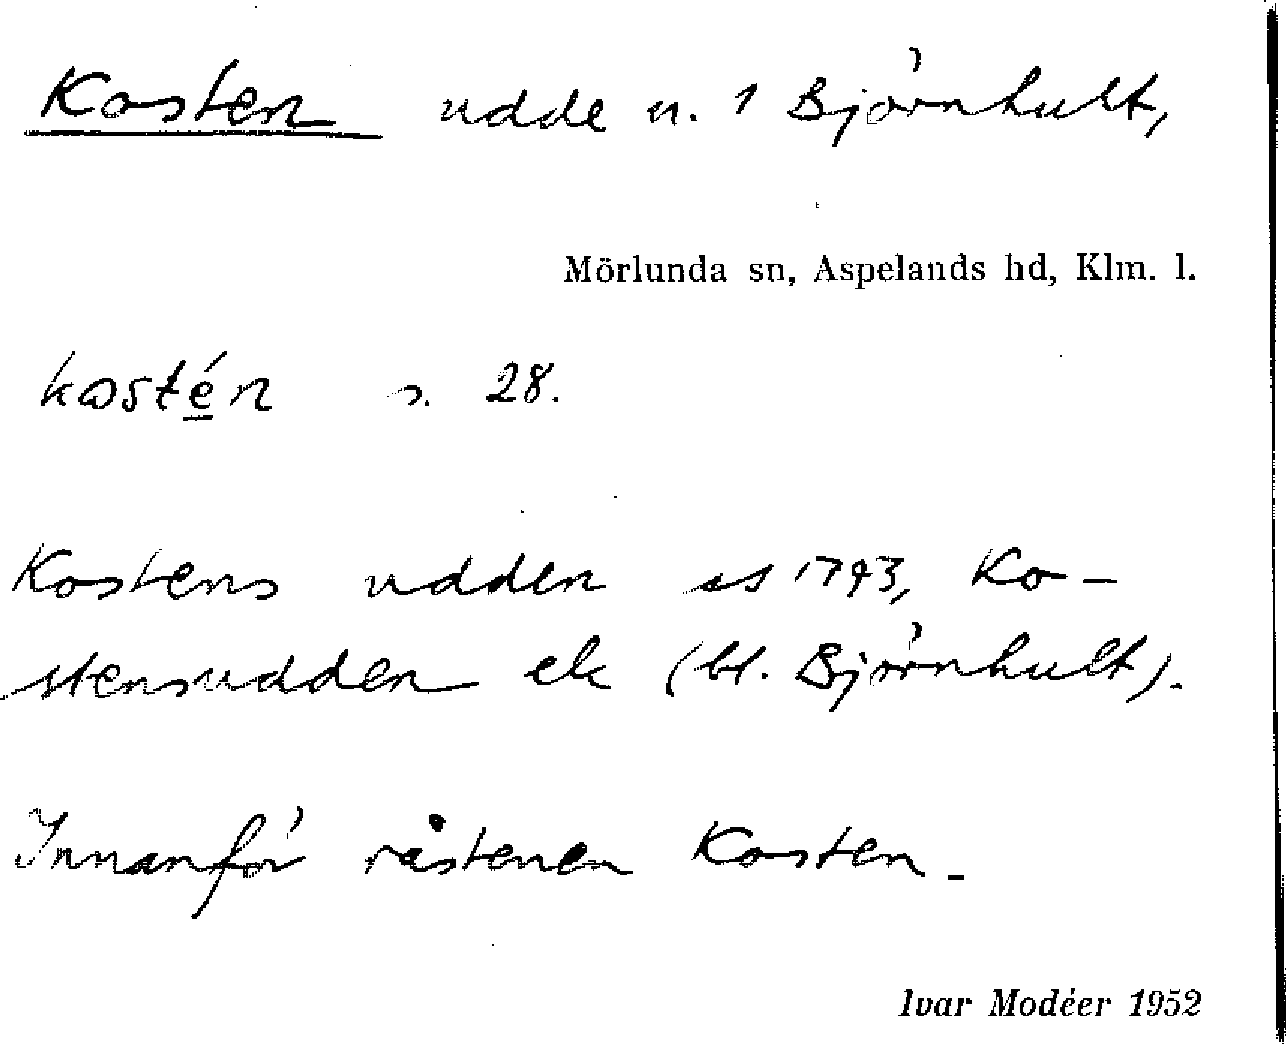 Kosten udde n. 1 Björnhult,
Mörlunda sn, Aspelands hd, Klm. l.
kostén s. 28.
Kostens udden as 1793, Ko-
stensudden ek (bl. Björnhult).
Innanför råstenen Kosten.
Ivar Modéer 1952